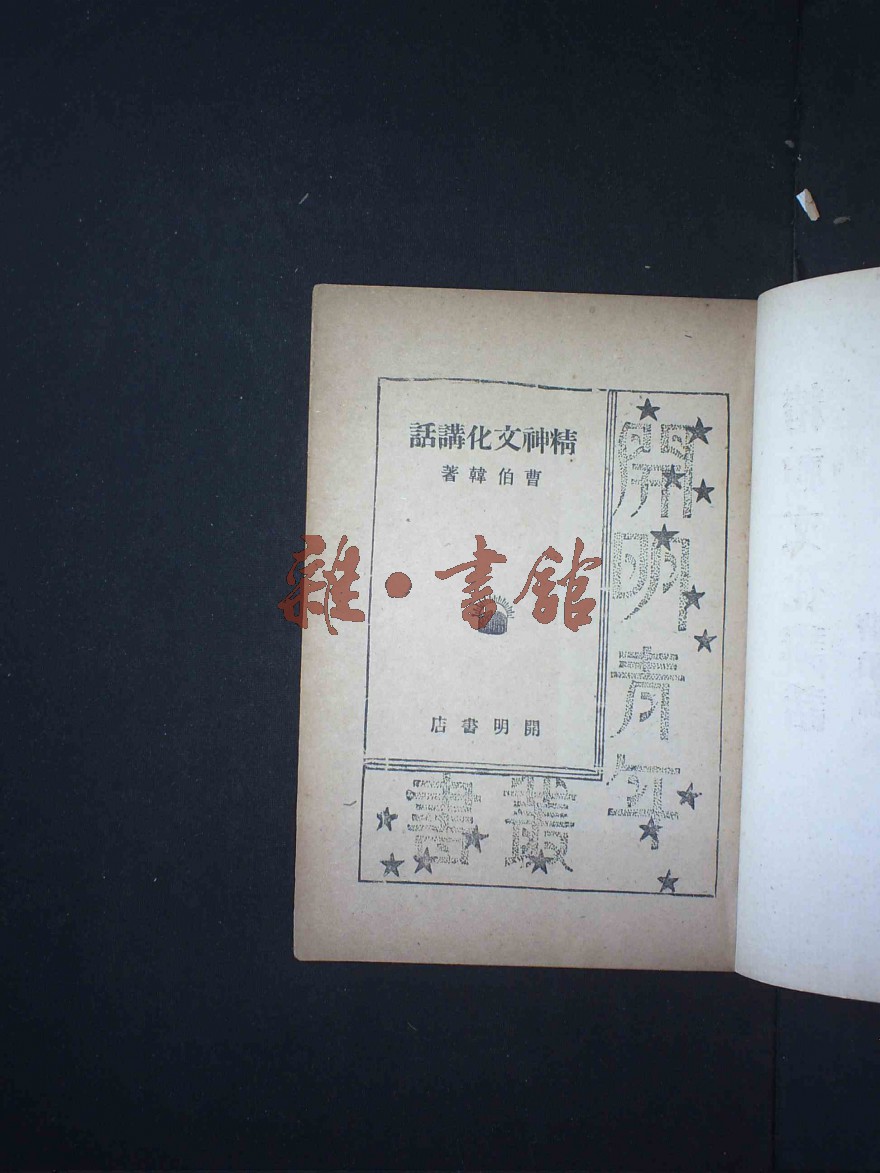 精神文化講話
曹伯韓著
開明書店
開明青年
叢書
雜·書舘